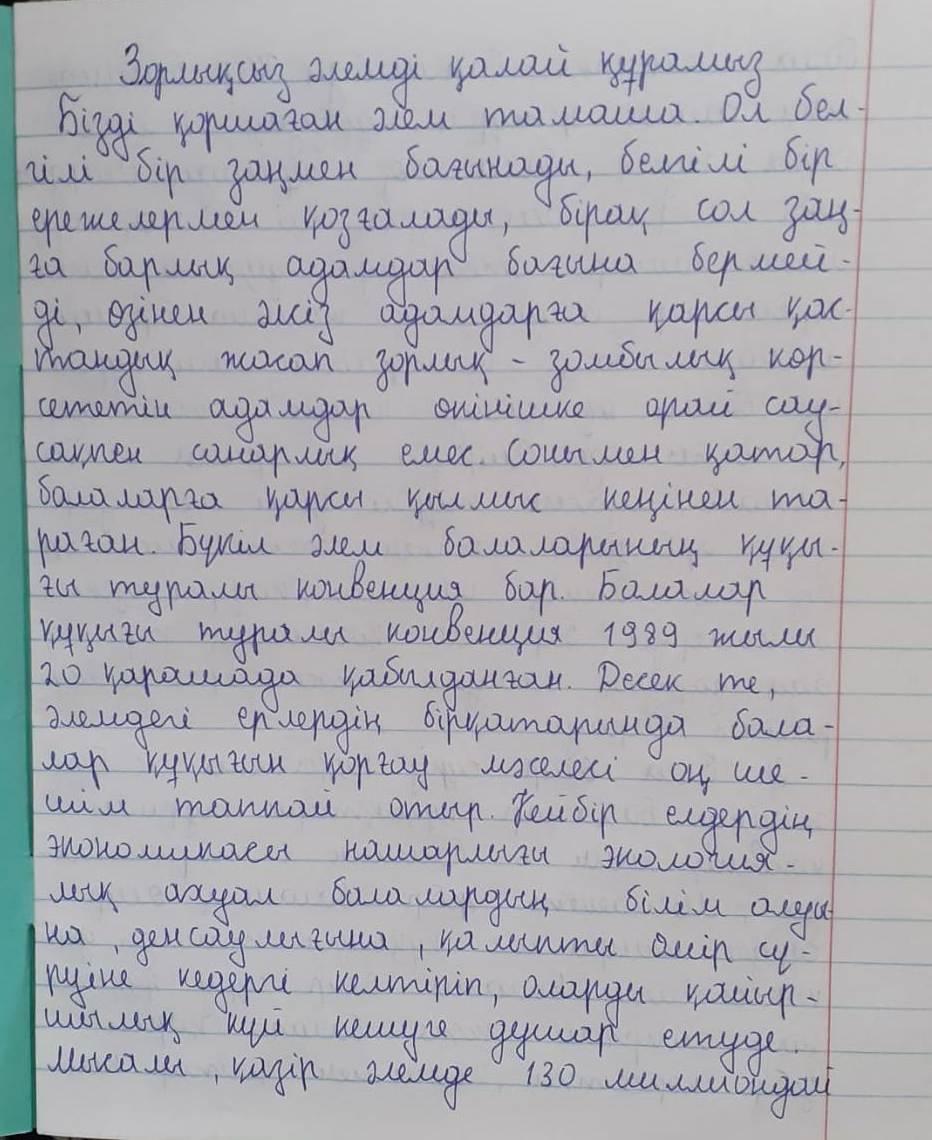 Зорлықсыз әлемді қалай құрамыз
Бізді қоршаған әлем тамаша. Ол бел-
гілі бір заңмен бағынады, белгілі бір
ережелермен қозғалады, бірақ сол заң-
ға барлық адамдар бағына бермей-
ді, өзінен әлсіз адамдарға қарсы қас-
тандық жасап зорлық - зомбылық көр-
сететін адамдар өкінішке орай сау-
сақпен санарлық емес. Сонымен қатар,
балаларға қарсы қылмыс кеңінен та-
раған. Бүкіл әлем балаларының құқы-
ғы туралы конвенция бар. Балалар
құқығы туралы конвенция 1989 жылы
20 қарашада қабылданған. Десек те,
әлемдегі ерлердің бірқатарында бала-
лар құқығын қорғау мәселесі оң ше-
шім таппай отыр. Кейбір елдердің
экономикасы нашарлығы экология-
лық ахуал балалардың білім алуы
на, денсаулығына, қалыпты өмір сү-
руіне кедергі келтіріп, оларды қайыр-
шылық күй кешуге душар етуде.
Мысалы, қазір әлемде 130 миллиондай